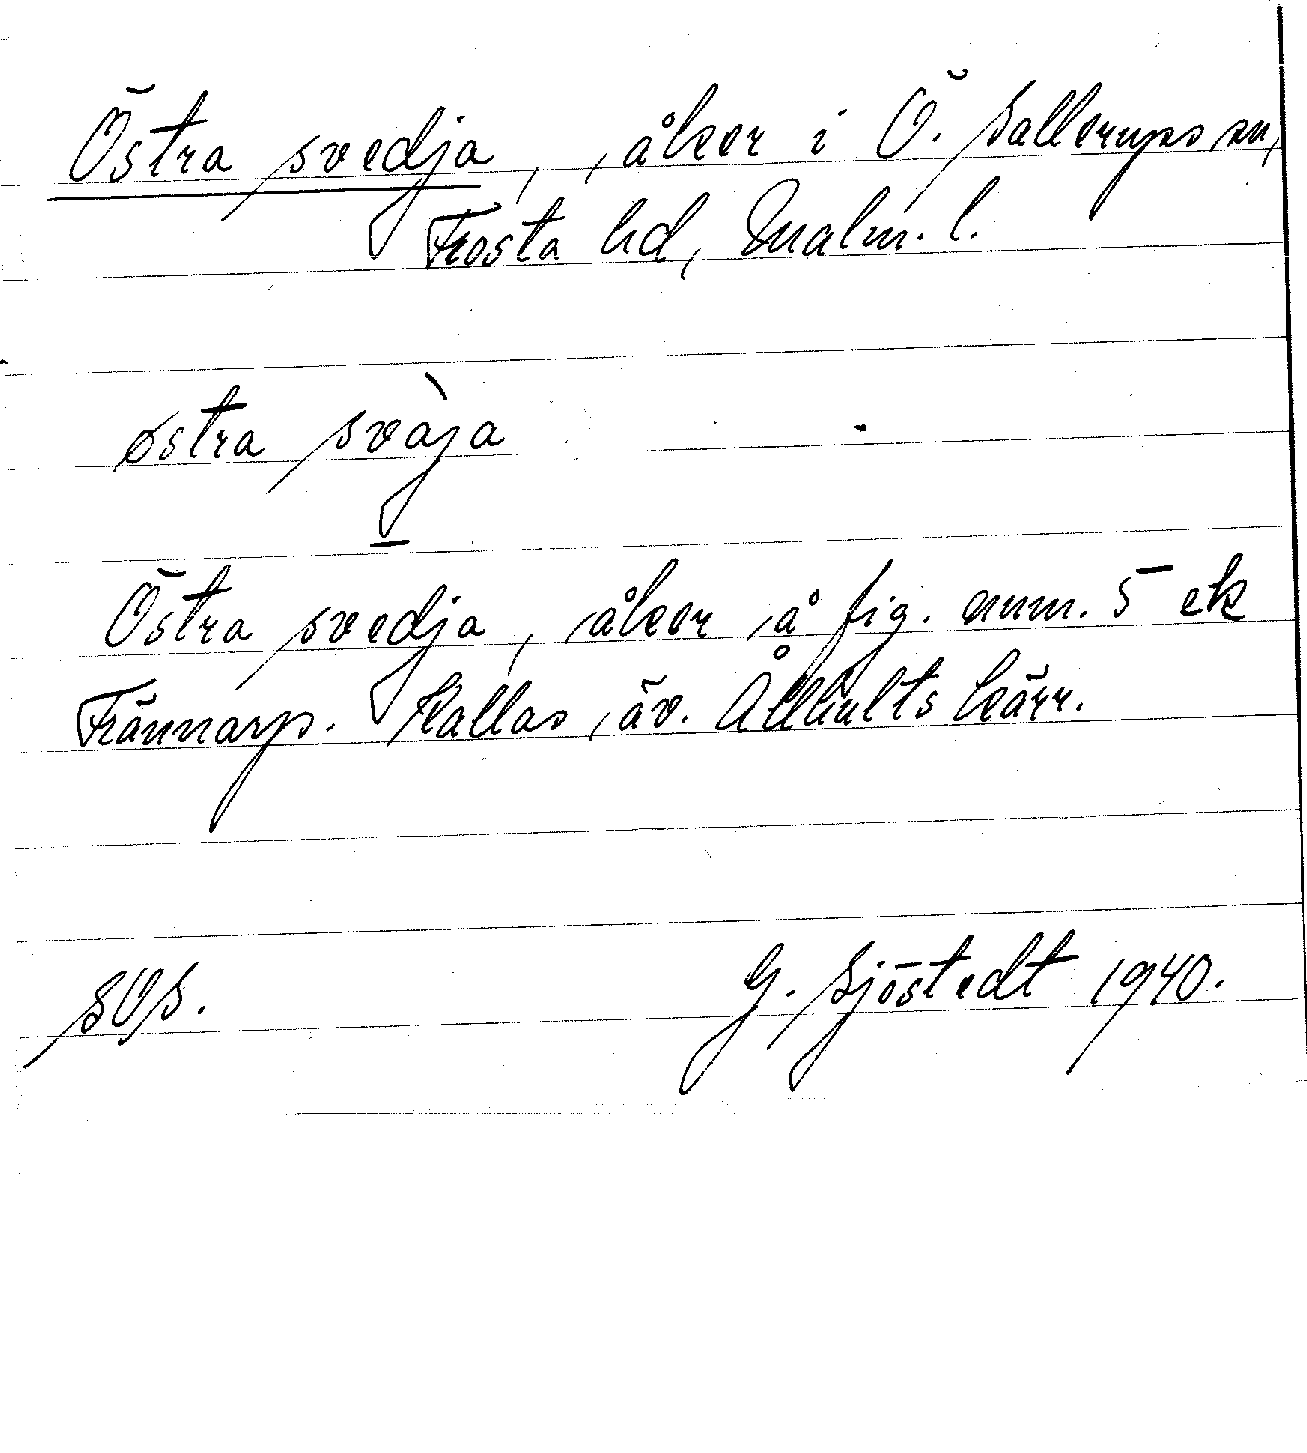 Östra svedja, åker i Ö. Sallerups sn,
Frosta hd, Malm. l.
östra svàja
Östra svedja, åker å fig. num. 5 ek
Frännarp. Kallas äv. Ållhults kärr.
SOS.
G. Sjöstedt 1940.